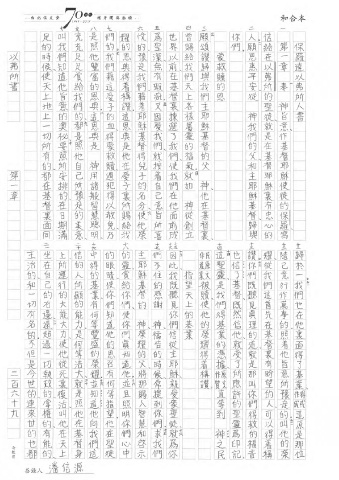 和合本
西北保良會 70 經卷謄寫
保羅達以弗所人書
第一章 奉 神旨意作基督耶穌使徒的保羅寫
信給在以弗所的聖徒就是在基督耶穌裏有忠心的
人願恩惠平安從 神我們的父和主耶穌基督歸與
你們
蒙救贖的恩
願頌讚歸與我們主耶穌基督的父 神他在基督裏
曾賜給我們天上各樣屬靈的福氣就如 神從創立
世界以前在基督裏揀選了我們使我們在他面前成
為聖潔無有瑕疵又因愛我們就按着自己意旨所喜
悅的預定我們藉着耶穌基督得兒子的名分使他榮
耀的恩典得着稱讚這恩典是他在愛子裏所賜給我
們的我們藉這愛子的血得蒙救贖過犯得以赦免乃
是照他豐富的恩典這恩典是 神用諸般智慧聰明
充充足足賞給我們的都是照他自己所預定的美意
叫我們知道他旨意的奧秘要照所安排的在日期滿
足的時候使天上地上一切所有的都在基督裏面同
歸於一我們也在他裏面得了基業這原是那位
隨己意行作萬事的照着他旨意所預定的叫他的榮
耀從我們這首先在基督裏有盼望的人可以得着稱讚
你們既聽見真理的道就是那叫你們得救的福音
也信了基督既然信他就受了所應許的聖靈為印記
這聖靈是我們得基業的憑據直等到 神之民
被贖使他的榮耀得着稱讚
指望天上的基業
因此我既聽見你們信從主耶穌親愛眾聖徒就為你
們不住的感謝 神禱告的時候常提到你們求我們
主耶穌基督的 神榮耀的父將那賜人智慧和啟示
的靈賞給你們使你們真知道他並且照明你們心中
的眼睛使你們知道他的恩召有何等指望他在聖徒
中得的基業有何等豐盛的榮耀並知道他向我們這
信的人所顯的能力是何等浩大就是照他在基督身
上所運行的大能大力使他從死裏復活叫他在天上
坐在自己的右邊遠超過一切執政的掌權的有能的
主治的和一切有名的不但是今世的連來世的也都
以弗所書
第一章
二百六十九
謄錄人 潘信源